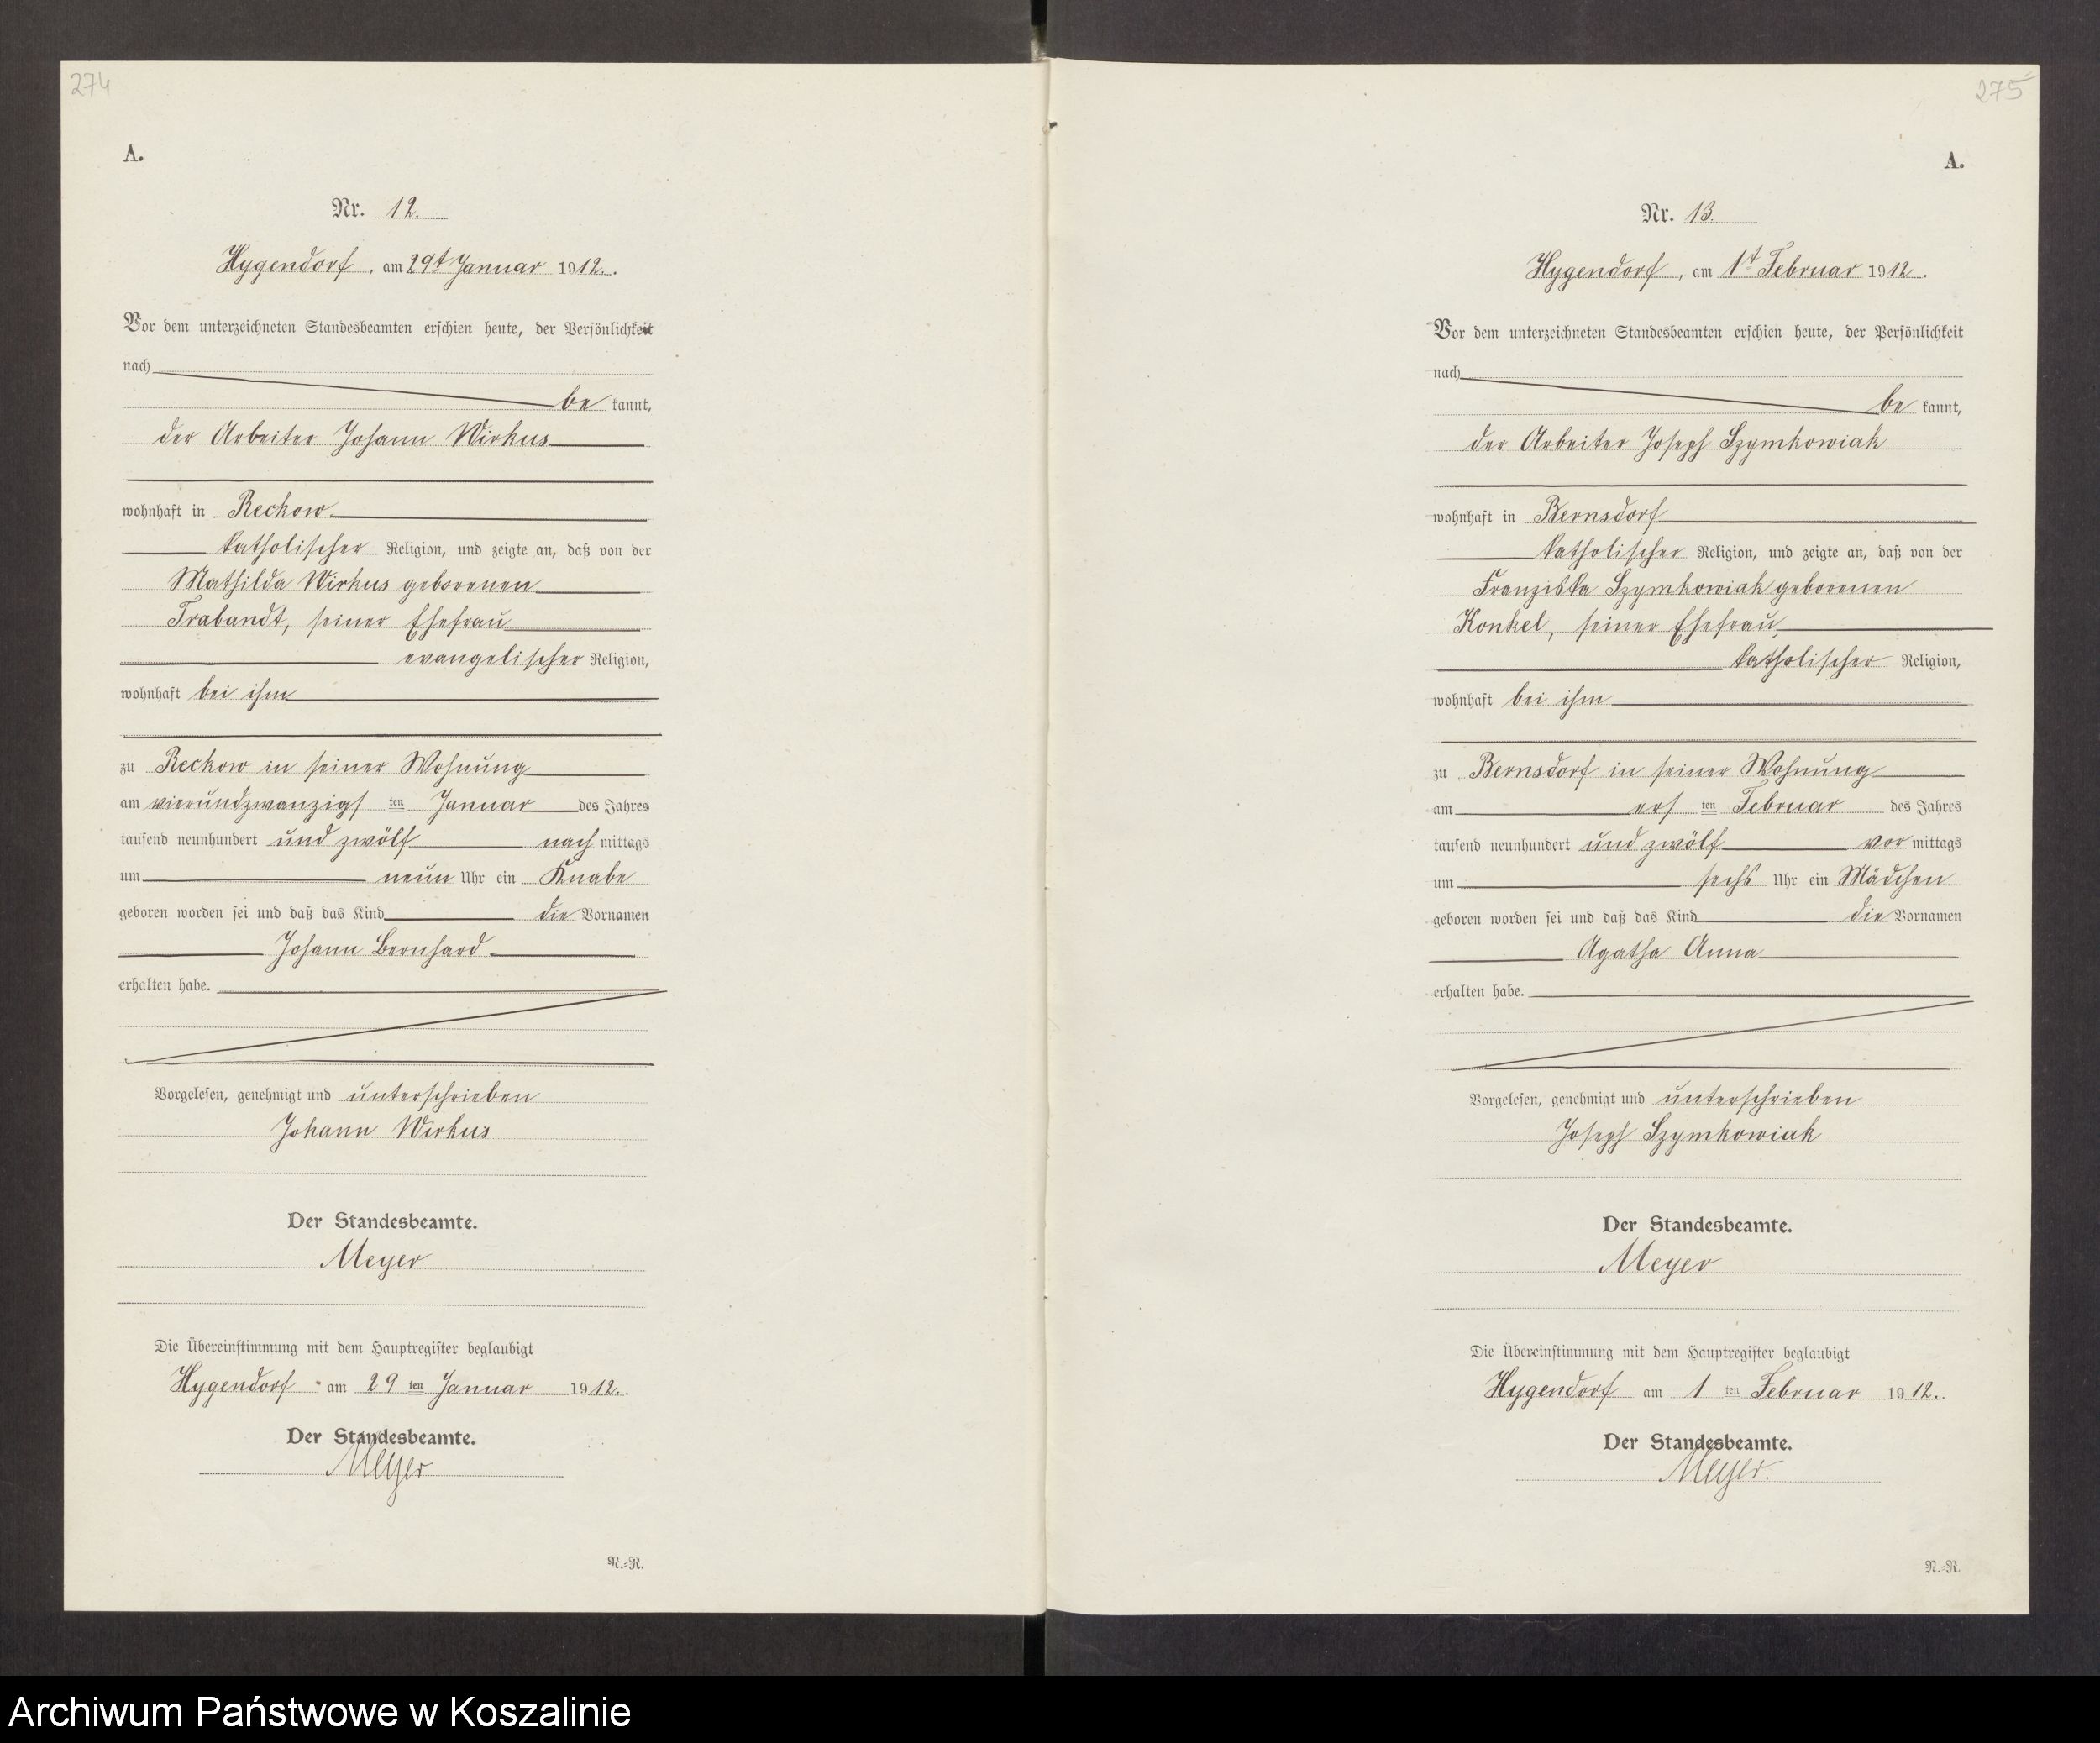 274
A.
Nr. 12.
Hygendorf, am 29t Januar 1912.
Vor dem unterzeichneten Standesbeamten erschien heute, der Persönlichkeit
nach
be kannt,
der Arbeiter Johann Wirkus
wohnhaft in Reckow
katholischer Religion, und zeigte an, daß von der
Mathilda Wirkus geborenen
Trabandt, seiner Ehefrau
evangelischer Religion,
wohnhaft bei ihm
zu Reckow in seiner Wohnung
am vierundzwanzigs ten Januar des Jahres
tausend neunhundert und zwölf nach mittags
um neun Uhr ein Knabe
geboren worden sei und daß das Kind die Vornamen
Johann Bernhard
erhalten habe.
Vorgelesen, genehmigt und unterschrieben
Johann Wirkus
Der Standesbeamte.
Meyer
Die Übereinstimmung mit dem Hauptregister beglaubigt
Hygendorf am 29 ten Januar 1912.
Der Standesbeamte.
Meyer
N.-R.
275
A.
Nr. 13.
Hygendorf, am 1t Februar 1912.
Vor dem unterzeichneten Standesbeamten erschien heute, der Persönlichkeit
nach
be kannt,
der Arbeiter Joseph Szymkowiak
wohnhaft in Bernsdorf
katholischer Religion, und zeigte an, daß von der
Franziska Szymkowiak geborenen
Konkel, seiner Ehefrau
katholischer Religion,
wohnhaft bei ihm
zu Bernsdorf in seiner Wohnung
am ers ten Februar des Jahres
tausend neunhundert und zwölf vor mittags
um sechs Uhr ein Mädchen
geboren worden sei und daß das Kind die Vornamen
Agatha Anna
erhalten habe.
Vorgelesen, genehmigt und unterschrieben
Joseph Szymkowiak
Der Standesbeamte.
Meyer
Die Übereinstimmung mit dem Hauptregister beglaubigt
Hygendorf am 1 ten Februar 1912.
Der Standesbeamte.
Meyer.
N.-R.
Archiwum Państwowe w Koszalinie